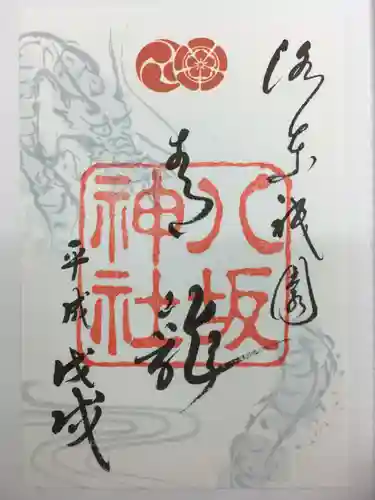 洛東祇園
青龍
八坂神社
平成戊戌